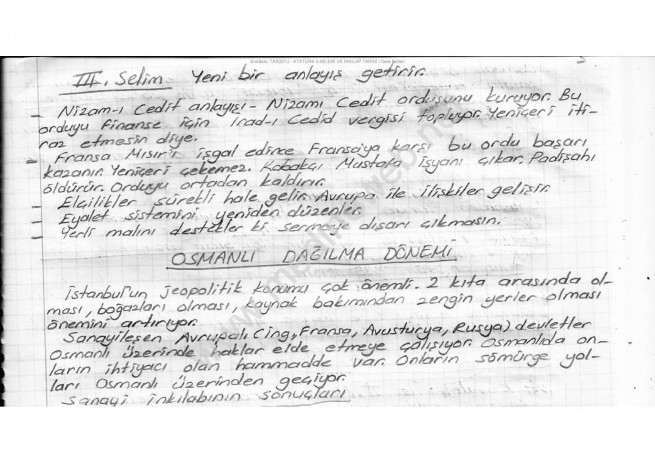 III. Selim Yeni bir anlayış getirir.
Nizam-ı Cedit anlayışı - Nizamı Cedit ordusunu kuruyor. Bu
orduyu finanse için İrad-ı Cedid vergisi topluyor. Yeniçeri iti-
raz etmesin diye.
Fransa Mısır'ı işgal edince Fransa'ya karşı bu ordu başarı
kazanır. Yeniçeri çekemez. Kabakçı Mustafa isyanı çıkar. Padişahı
öldürür. Orduyu ortadan kaldırır.
Elçilikler sürekli hale gelir. Avrupa ile ilişkiler gelişir.
Eyalet sistemini yeniden düzenler.
Yerli malını destekler ki sermaye dışarı çıkmasın.
OSMANLI DAĞILMA DÖNEMİ
İstanbul'un jeopolitik konumu çok önemli. 2 kıta arasında ol-
ması, boğazları olması, kaynak bakımından zengin yerler olması
önemini artırıyor.
Sanayileşen Avrupalı (ing, Fransa, Avusturya, Rusya) devletler
Osmanlı üzerinde haklar elde etmeye çalışıyor. Osmanlıda on-
ların ihtiyacı olan hammadde var. Onların sömürge yol-
ları Osmanlı üzerinden geçiyor.
Sanayi inkılabının sonuçları